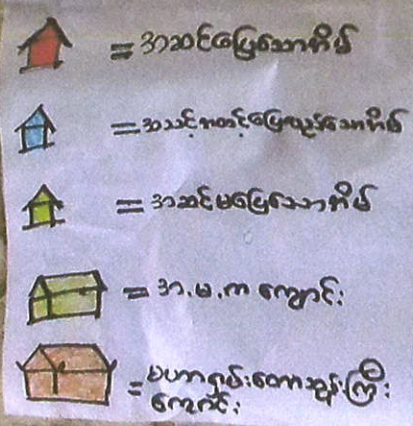 = အဆင်ပြေသောအိမ်
= အသင့်အတင့်ပြေလည်သောအိမ်
= အဆင်မပြေသောအိမ်
= အ.မ.က ကျောင်း
= မဟာရှမ်းတောဘုန်းကြီး
ကျောင်း